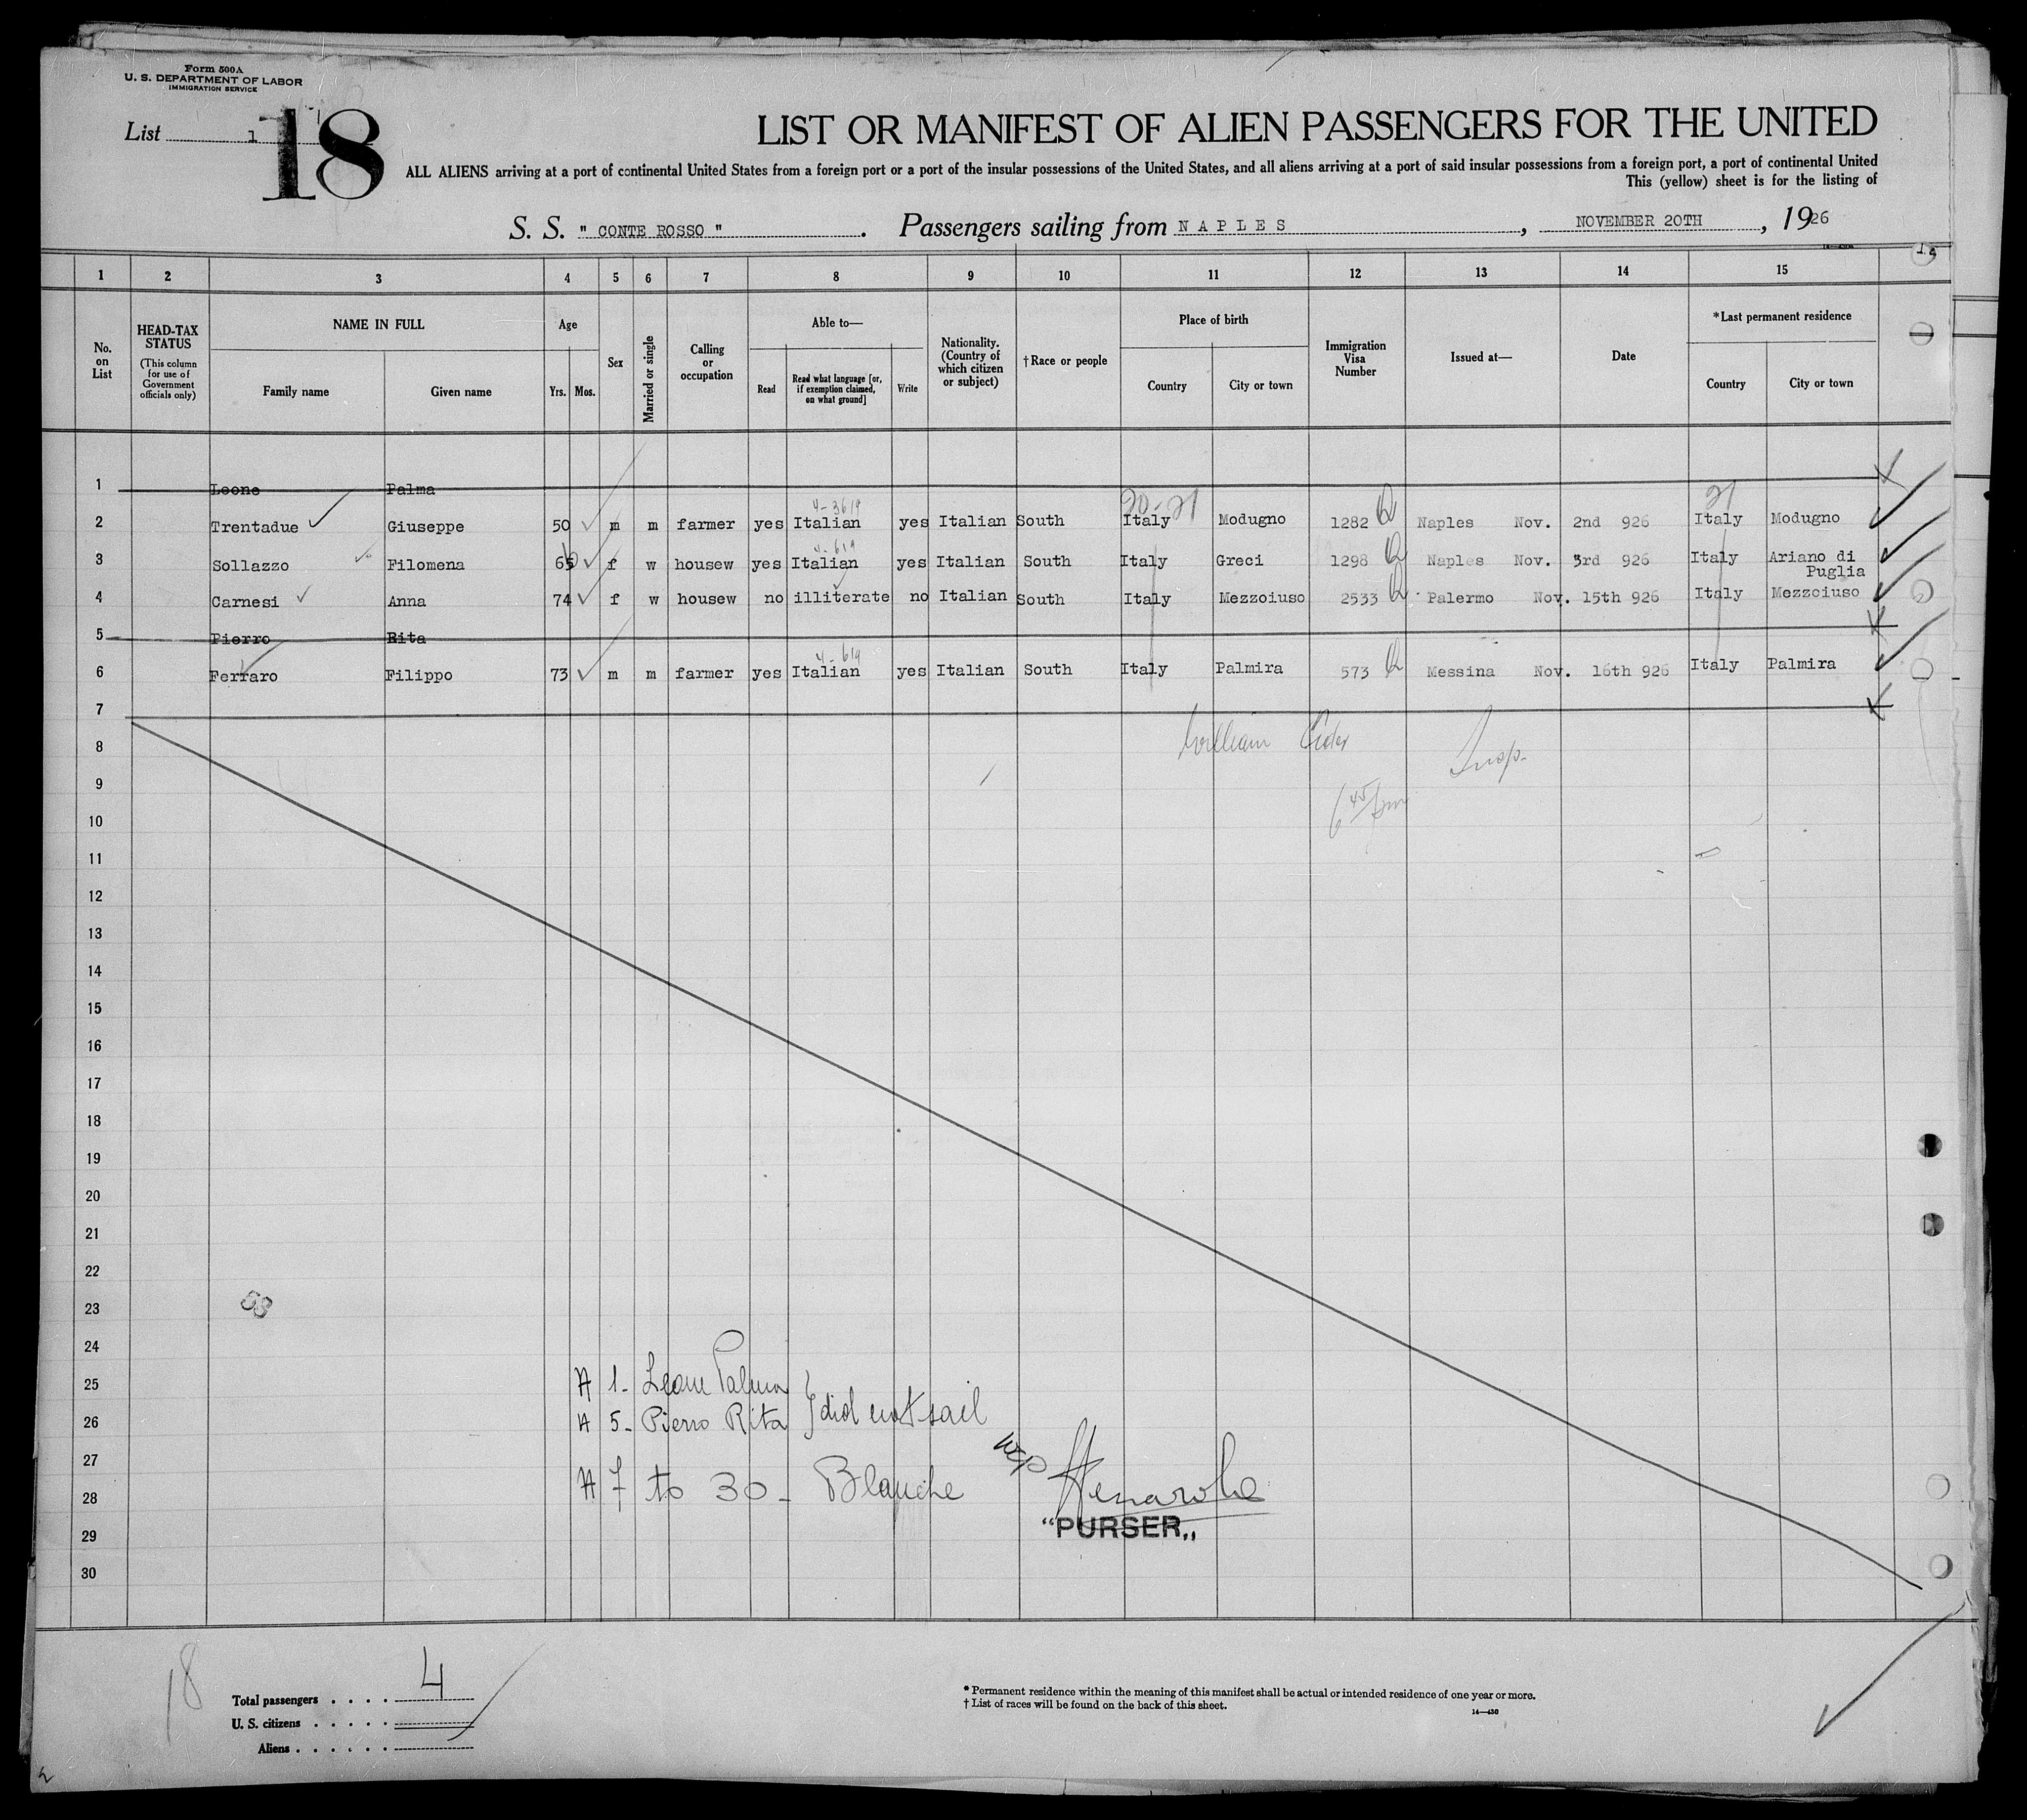 Form 500A
U. S. DEPARTMENT OF LABOR
IMMIGRATION SERVICE
List 1
18
LIST OR MANIFEST OF ALIEN PASSENGERS FOR THE UNITED
ALL ALIENS arriving at a port of continental United States from a foreign port or a port of the insular possessions of the United States, and all aliens arriving at a port of said insular possessions from a foreign port, a port of continental United
This (yellow) sheet is for the listing of
S. S. " CONTE ROSSO " . Passengers sailing from NAPLES , NOVEMBER 20TH , 1926
1 2 3 4 5 6 7 8 9 10 11 12 13 14 15
No. on List
HEAD-TAX STATUS
(This column for use of Government officials only)
NAME IN FULL
Family name Given name
Age
Yrs. Mos.
Sex
Married or single
Calling or occupation
Able to—
Read
Read what language [or, if exemption claimed, on what ground]
Write
Nationality. (Country of which citizen or subject)
†Race or people
Place of birth
Country City or town
Immigration Visa Number
Issued at—
Date
*Last permanent residence
Country City or town
1 Leone Palma
20-21 21
2 Trentadue Giuseppe 50 m m farmer yes Italian yes Italian South Italy Modugno 1282 Naples Nov. 2nd 926 Italy Modugno
3 Sollazzo Filomena 65 f w housew yes Italian yes Italian South Italy Greci 1298 Naples Nov. 3rd 926 Italy Ariano di Puglia
4 Carnesi Anna 74 f w housew no illiterate no Italian South Italy Mezzoiuso 2533 Palermo Nov. 15th 926 Italy Mezzoiuso
5 Pierro Rita
6 Ferraro Filippo 73 m m farmer yes Italian yes Italian South Italy Palmira 573 Messina Nov. 16th 926 Italy Palmira
7
8 William Insp.
9
10
11
12
13
14
15
16
17
18
19
20
21
22
23 53
24
25 1- Leone Palma
26 5- Pierro Rita did not sail
27
28 7 to 30- Blanche
"PURSER,,
29
30
18
Total passengers . . . . 4
U. S. citizens . . . . .
Aliens . . . . . .
* Permanent residence within the meaning of this manifest shall be actual or intended residence of one year or more.
† List of races will be found on the back of this sheet.
14—430